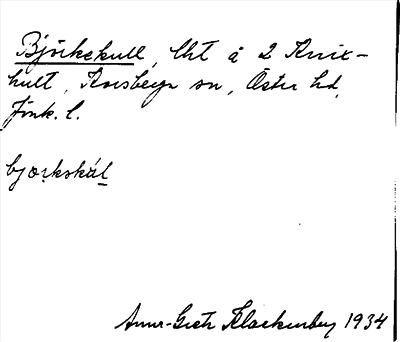 Björkekull, lht å 2 Knix-
hult, Korsberga sn, Östra hd,
Jönk. l.
bjorkskál
Anna-Greta Klackenberg 1934